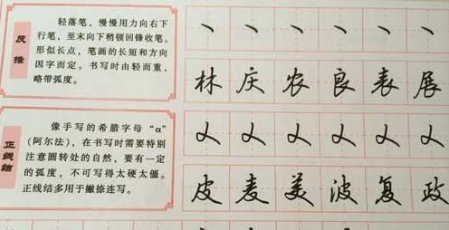 反捺
轻落笔，慢慢用力向右下
行笔，至末向下稍顿回锋收笔。
形似长点，笔画的长短和方向
因字而定。书写时由轻而重，
略带弧度。
林 庆 农 良 表 展
正线结
像手写的希腊字母“α”
(阿尔法)，在书写时需要特别
注意圆转处的自然，要有一定
的弧度，不可写得太硬太僵。
正线结多用于撇捺连写。
皮 麦 美 波 复 政